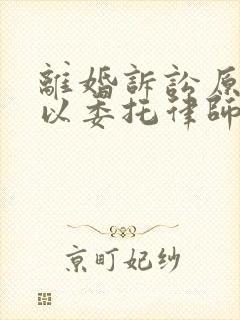 離婚訴訟原
以委托律師
京町妃纱